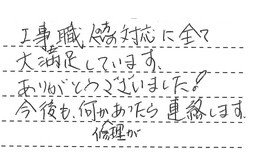 工事職 対応に全て
大満足しています、
ありがとうございました!
今後も、何かあったら連絡します。
修理が